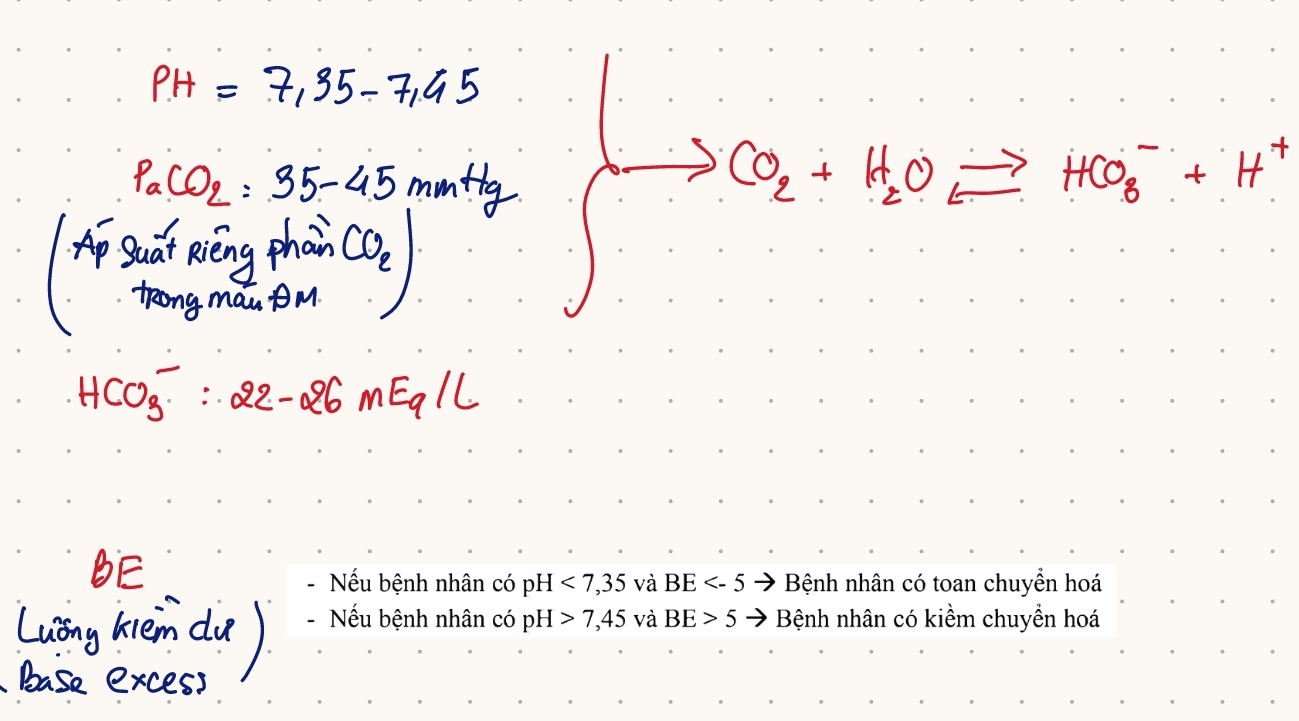 PH = 7,35-7,45
PaCO₂ : 35-45 mmHg
(Áp suất riêng phần CO₂
trong máu ĐM)
CO₂ + H₂O ⇌ HCO₃⁻ + H⁺
HCO₃⁻ : 22-26 mEq/L
BE
Lượng kiềm dư
Base excess)
- Nếu bệnh nhân có pH < 7,35 và BE <- 5 → Bệnh nhân có toan chuyển hoá
- Nếu bệnh nhân có pH > 7,45 và BE > 5 → Bệnh nhân có kiềm chuyển hoá